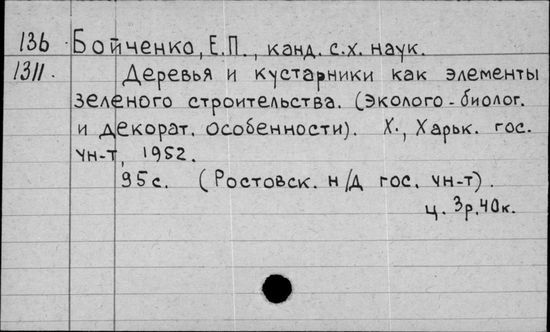 136 Бойченко, Е.П., канд. с.х. наук.
1311. Деревья и кустарники как элементы
зеленого строительства. (Эколого-биолог.
и декорат. особенности). Х., Харьк. гос.
ун-т, 1952.
95 с. (Ростовск. н/Д гос. ун-т).
ц. 3р.40к.